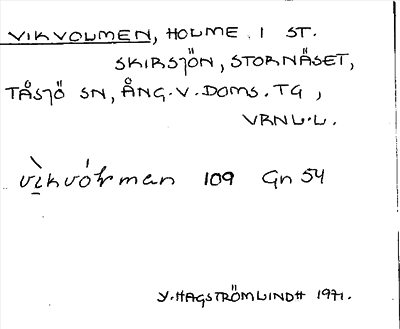 VIKVOLMEN, HOLME I ST.
SKIRSJÖN, STORNÄSET,
TÅSJÖ SN, ÅNG.V.DOMS.TG,
VRNL.L.
vìkvóɫman 109 Gn 54
Y. HAGSTRÖMLINDH 1971.